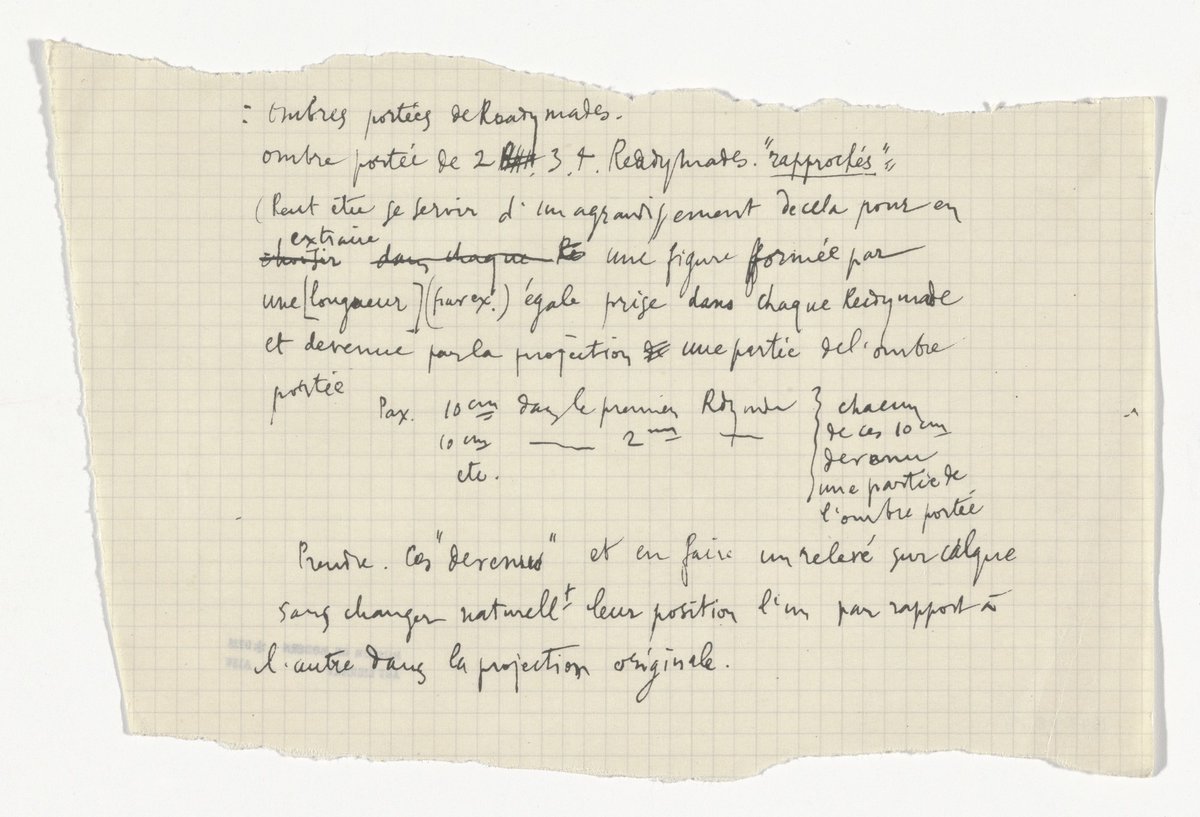 : Ombres portées de Readymades.
ombre portée de 2. 3. 4. Readymades. "rapprochés"=
(Peut être se servir d'un agrandissement de cela pour en
extraire
choisir dans chaque Re une figure formée par
une [longueur] (par ex.) égale prise dans chaque Readymade
et devenue par la projection une partie de l'ombre
portée
P. ex. 10 cm dans le premier Rdymade } chacun
10 cm —— 2me — de ces 10 cm
etc. devenu
une partie de
l'ombre portée
Prendre. Ces "devenus" et en faire un relevé sur calque
sans changer naturellt leur position l'un par rapport à
l'autre dans la projection originale.